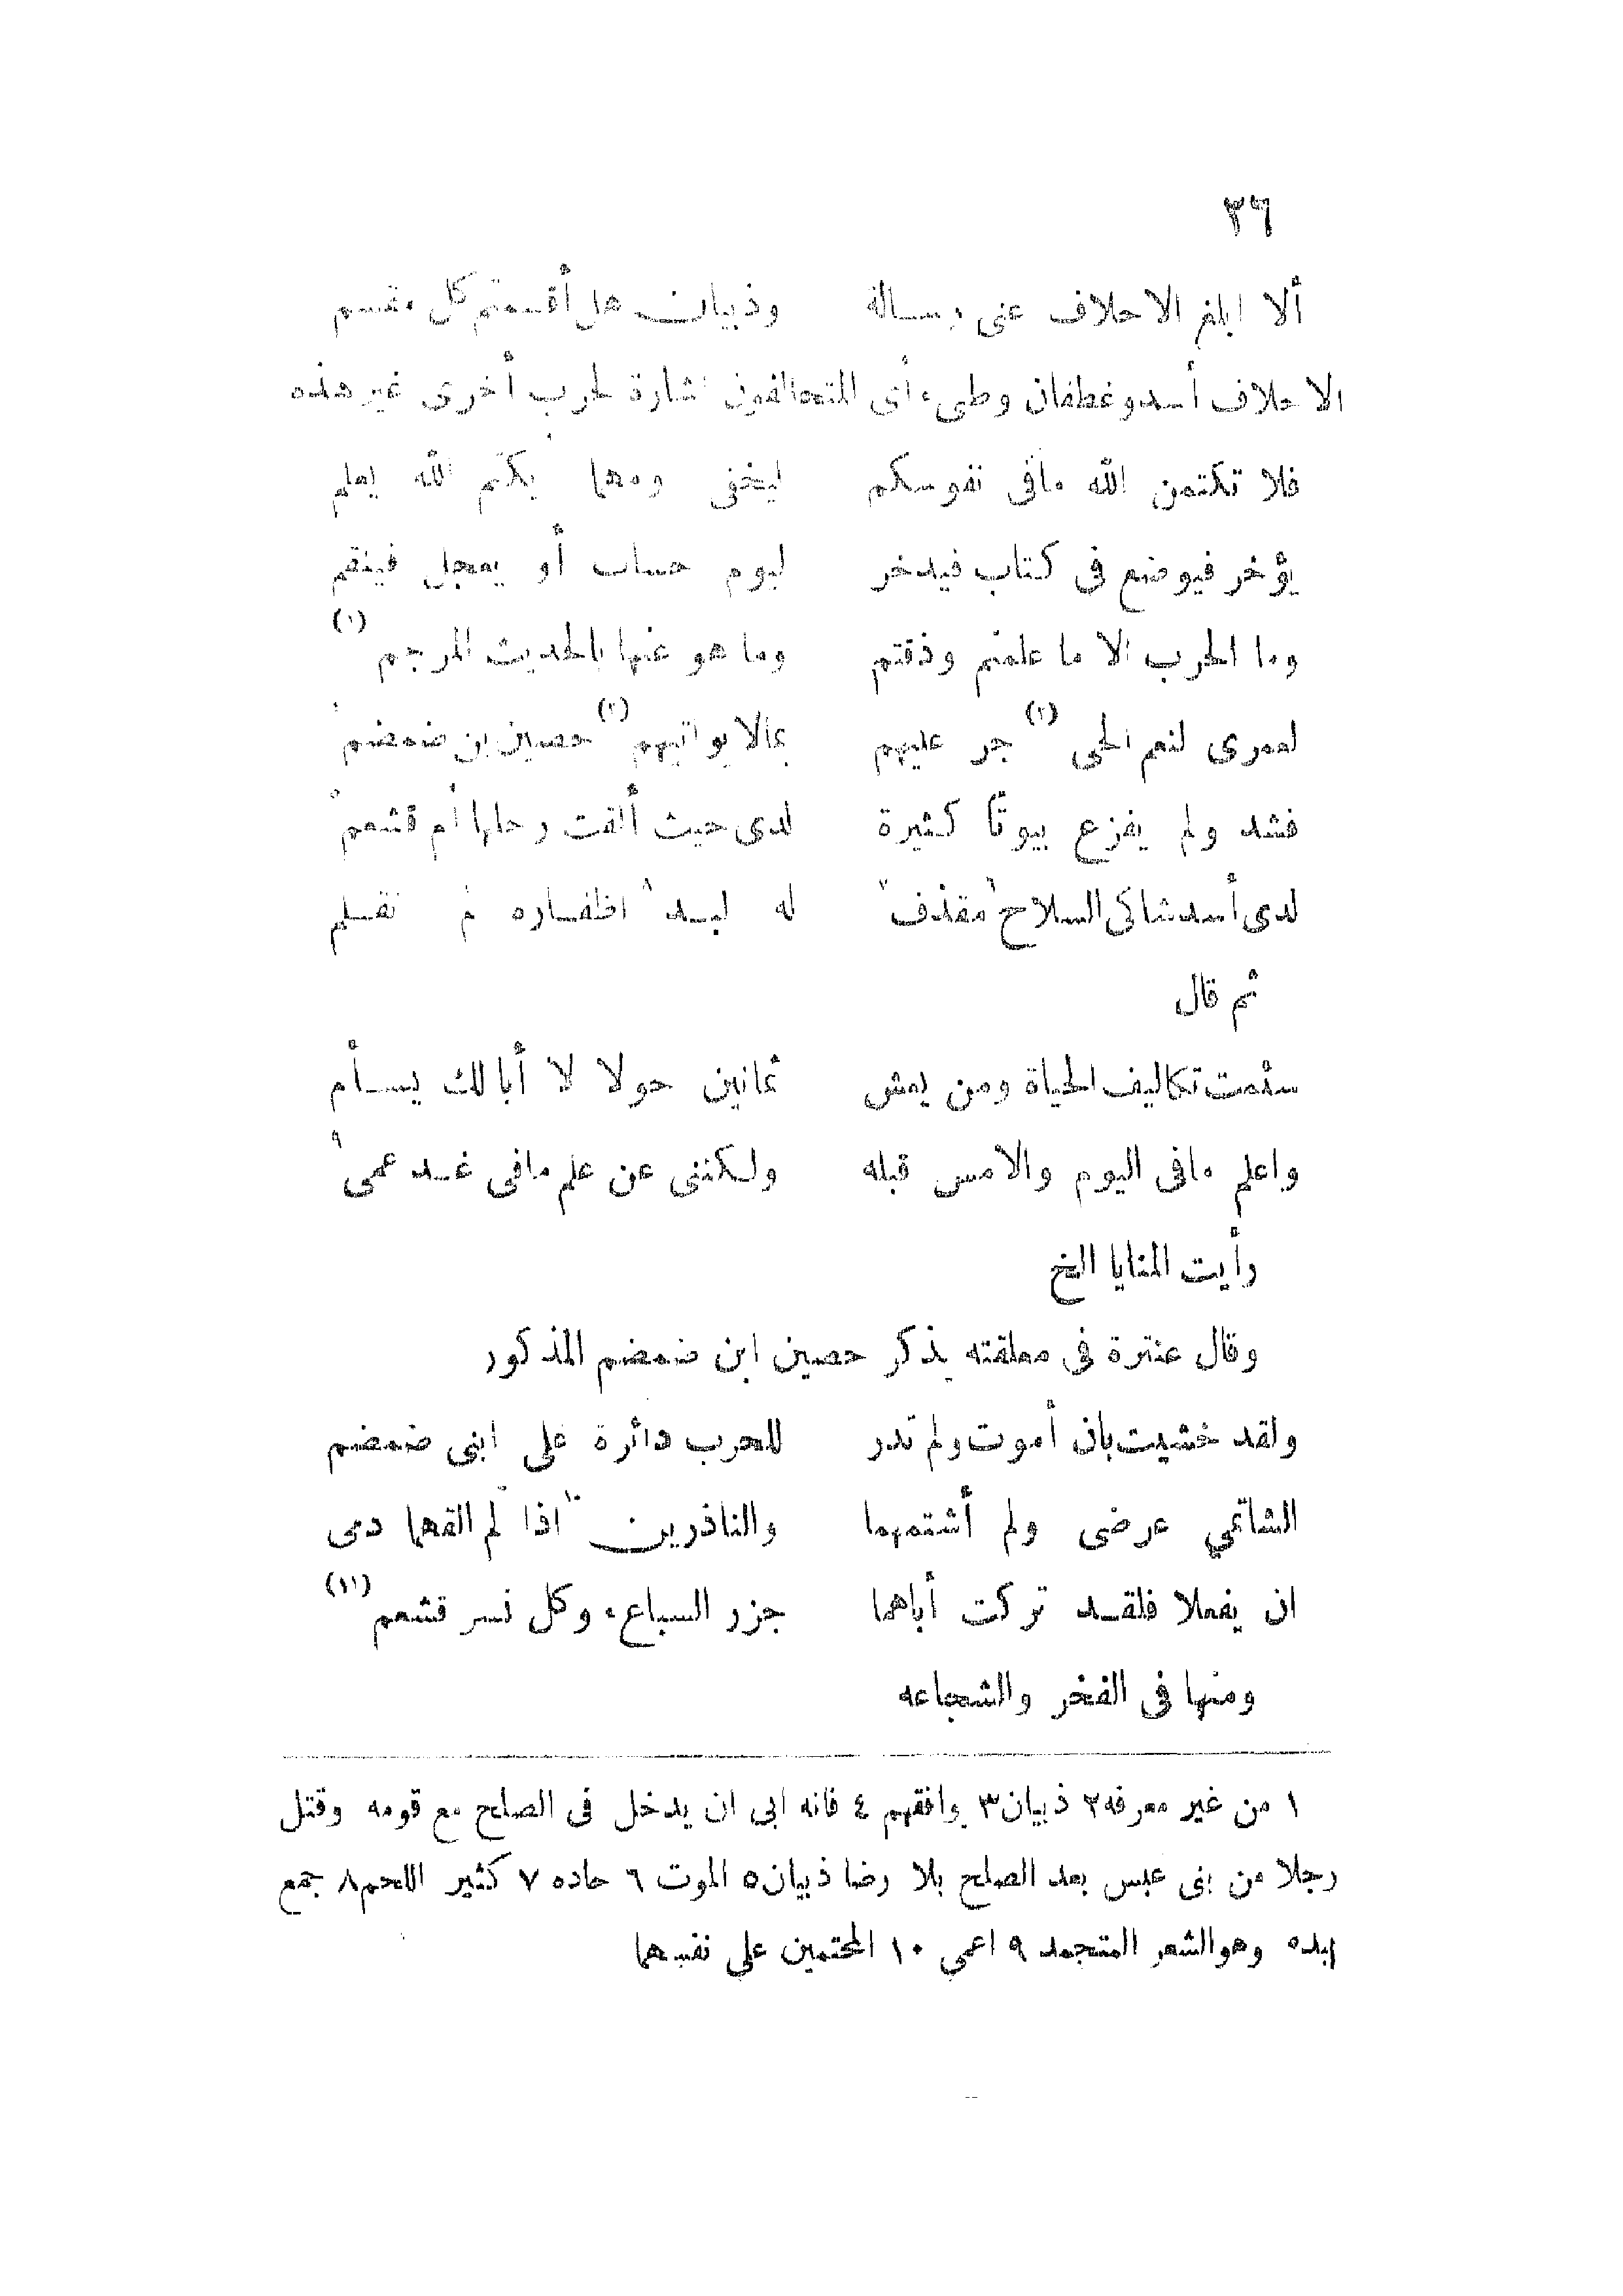 ٣٦
ألا ابلغ الاحلاف عنى رسالة وذبيان هل أقسمتم كل مقسم
الاحلاف أسد وغطفان وطىء أى المتحالفون اشارة لحرب أخرى غير هذه
فلا تكتمن الله مافى نفوسكم ليخفى ومهما يكتم الله يعلم
يؤخر فيوضع فى كتاب فيدخر ليوم حساب أو يعجل فينقم
وما الحرب الا ما علمتم وذقتم وما هو عنها بالحديث المرجم (١)
لعمرى لنعم الحى (٢) جر عليهم بمالا يواتيهم (٣) حصين بن ضمضم
فشد ولم يفزع بيوتًا كثيرة لدى حيث ألقت رحلها أم قشعم ٥
لدى أسد شاكى السلاح ٦ مقذف ٧ له لبد ٨ اظفاره لم تقلم
ثم قال
سئمت تكاليف الحياة ومن يعش ثمانين حولا لا أبا لك يسأم
واعلم مافى اليوم والامس قبله ولكننى عن علم مافى غد عمى ٩
رأيت المنايا الخ
وقال عنترة فى معلقته يذكر حصين ابن ضمضم المذكور
ولقد خشيت بان أموت ولم تدر للحرب دائرة على ابنى ضمضم
الشاتمي عرضى ولم أشتمهما والناذرين ١٠ اذا لم القهما دمى
ان يفعلا فلقد تركت أباهما جزر السباع، وكل نسر قشعم (١١)
ومنها فى الفخر والشجاعه
١ من غير معرفه ٢ ذبيان ٣ يوافقهم ٤ فانه ابى ان يدخل فى الصلح مع قومه وقتل
رجلا من بنى عبس بعد الصلح بلا رضا ذبيان ٥ الموت ٦ حاده ٧ كثير اللحم ٨ جمع
لبده وهو الشعر المتجمد ٩ اعمي ١٠ المحتمين على نفسهما